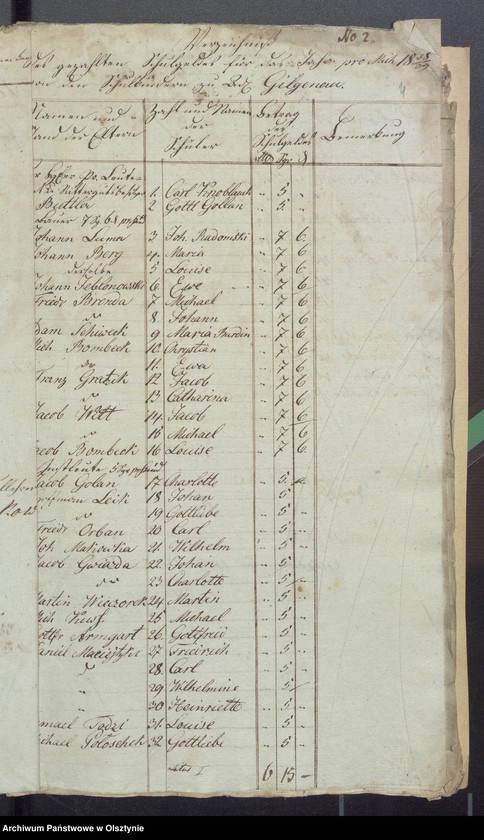 No 2.
Verzeichniß
des gezahlten Schulgeldes für das Jahr pro Mich. 18
von den Schulkindern zu Gilgenau.
Namen und
Stand der Eltern
Zahl und Namen
der
Schüler
Betrag
des
Schulgeldes
Sgr
Bemerkung
1. Carl Knoblauch " 5 "
Buttler 2 Gottl Gollan " 5 "
Johann Lama 3 Joh. Radomski " 7 6
Johann Berg 4. Maria " 7 6
derselbe 5 Louise " 7 6
Johann Jeblonowski 6. Ewe " 7 6
Friedr Brenda 7 Michael " 7 6
8 Johann " 7 6
Adam 9 Maria Burdin " 7 6
Mich. Bombeck 10. Chrystian " 7 6
11. Ewa " 7 6
Franz 12 Jacob " 7 6
13 Catharina " 7 6
Jacob Witt 14. Jacob " 7 6
15 Michael " 7 6
Jacob Bombeck 16 Louise " 7 6
Jacob Golan 17 Charlotte " 5
Leik 18 Johan " 5 "
19 Gottliebe " 5 "
Friedr Orban 20 Carl " 5 "
Joh 21. Wilhelm " 5 "
Jacob Gwiazda 22. Johan " 5 "
23 Charlotte " 5 "
Martin Wieczorek 24 Martin " 5 "
Mich 25 Michael " 5 "
Gottfr Armgart 26. Gottfried " 5 "
Daniel 27. Friedrich " 5 "
28. Carl " 5 "
29 Wilhelmine " 5 "
30 Heinriette " 5 "
31. Louise " 5 "
Michael 32. Gottliebe " 5 "
6 15 –
Archiwum Państwowe w Olsztynie